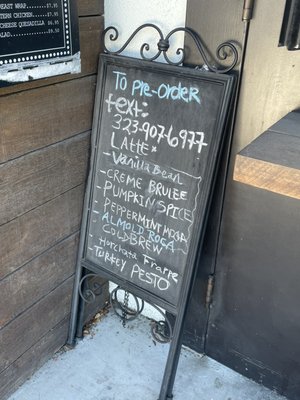 FAST WRAP
TERN CHICKEN.
CHEESE QUESADILLA
SALAD.
To Pre-order
text:
323-907-6977
Latte *
- Vanilla Bean
- CREME BRULEE
- PUMPKIN SPICE
- PEPPERMINT MOCHA
- ALMOLD ROCA
COLDBREW
- Horchata Frappe
- TURKEY PESTO